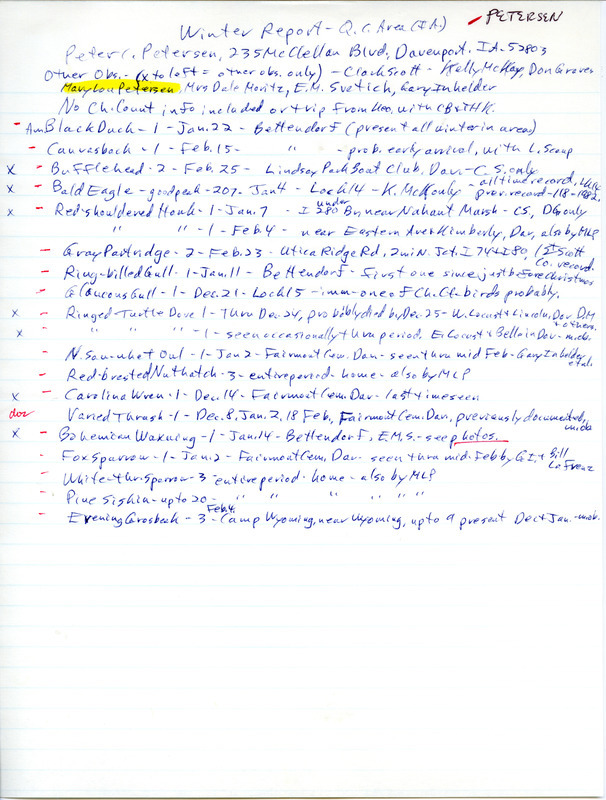 PETERSEN
Winter Report - Q.C. Area (IA.)
Peter C. Petersen, 235 McClellan Blvd, Davenport, IA. 52803
Other Obs. - (x to left = other obs. only) - Clark Scott - Kelly McKay, Don Graves
Mary Lou Petersen, Mrs Dale Moritz, E.M. Svetich, Gary Inhelder
No Ch. Count info included or trip from Keo, with CB & THK.
- Am Black Duck - 1 - Jan. 22 - Bettendorf (present all winter in area)
- Canvasback - 1 - Feb. 15 - " - prob. early arrival, with L. Scaup
x - Bufflehead - 2 - Feb. 25 - Lindsay Park Boat Club, Dav - C.S. only
x - Bald Eagle - good peak - 207 - Jan 4 - Lock 14 - K. McK only - all time record, Lk 14
prev. record - 118 - 1982.
x - Red-shouldered Hawk - 1 - Jan. 7 - I 280 under Br, near Nahant Marsh - CS, DG only
" " - 1 - Feb. 4 - near Eastern Ave & Kimberly, Dav, also by MLP
- Gray Partridge - 2 - Feb. 23 - Utica Ridge Rd, 2 mi N. Jct. I 74 & I 80, 1st Scott
Co. record.
- Ring-billed Gull - 1 - Jan. 11 - Bettendorf - first one since just before Christmas
- Glaucous Gull - 1 - Dec. 21 - Lock 15 - imm - one of Ch. Ct. birds probably.
x - Ringed Turtle Dove 1 - Thru Dec. 24, probably died by Dec. 25 - W. Locust & Lincoln, Dav. D.M
& others.
x - " " " - 1 - seen occasionally thru period, E. Locust & Belle in Dav - m.ob.
- N. Saw-whet Owl - 1 - Jan 2 - Fairmont Cem. Dav - seen thru mid Feb - Gary Inhelder
et al.
- Red-breasted Nuthatch - 3 - entire period - home - also by MLP
x - Carolina Wren - 1 - Dec. 14 - Fairmont Cem. Dav - last time seen
doc Varied Thrush - 1 - Dec. 8, Jan. 2, 18 Feb, Fairmont Cem. Dav, previously documented,
m.ob
x - Bohemian Waxwing - 1 - Jan. 14 - Bettendorf, E.M.S. - see photos.
- Fox Sparrow - 1 - Jan. 2 - Fairmont Cem, Dav - seen thru mid. Feb by G.I. & Bill
LaFrenz
- White-thr. Sparrow - 3 - entire period - home - also by MLP
- Pine Siskin - up to 20 - " " " " "
- Evening Grosbeak - 3 - Feb 4 - Camp Wyoming, near Wyoming, up to 9 present Dec & Jan. - mob.